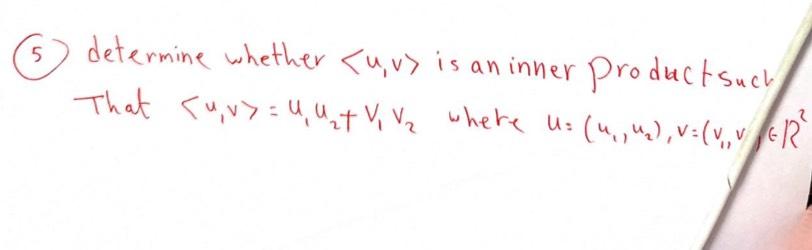 ⑤ determine whether <u,v> is an inner product such
That <u,v> = u₁u₂+ v₁ v₂ where u=(u₁,u₂), v=(v₁,v ∈ℝ²